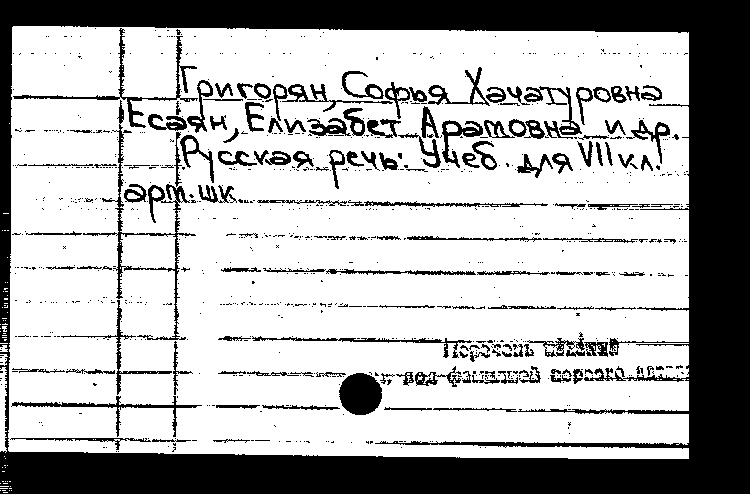 Григорян, Софья Хачатуровна
Есаян, Елизабет Арамовна и др.
Русская речь: Учеб. для VII кл.
арт. шк.
Перечень изданий
под фамилией первого автора